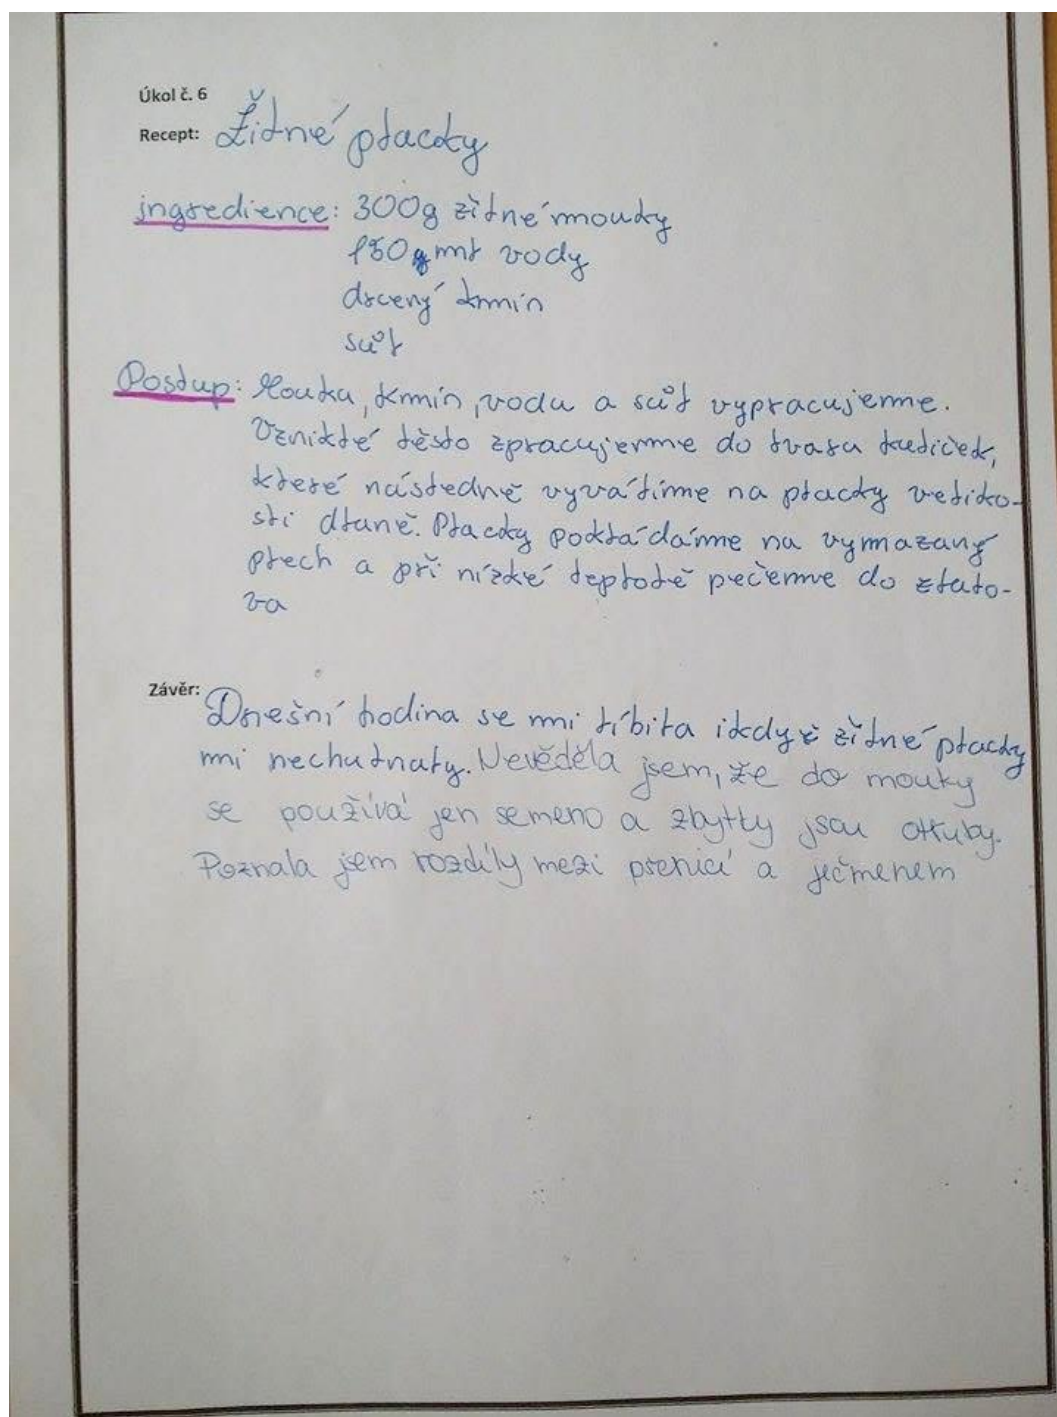 Úkol č. 6
Recept: Žitné placky
ingredience: 300g žitné mouky
150 ml vody
drcený kmín
sůl
Postup: Mouka, kmín, vodu a sůl vypracujeme.
Vzniklé těsto zpracujeme do tvaru kuliček,
které následně vyválíme na placky veliko-
sti dlaně. Placky pokládáme na vymazaný
plech a při nízké teplotě pečeme do zlato-
va
Závěr: Dnešní hodina se mi líbila ikdyž žitné placky
mi nechutnaly. Nevěděla jsem, že do mouky
se používá jen semeno a zbytky jsou otruby.
Poznala jsem rozdíly mezi pšenicí a ječmenem